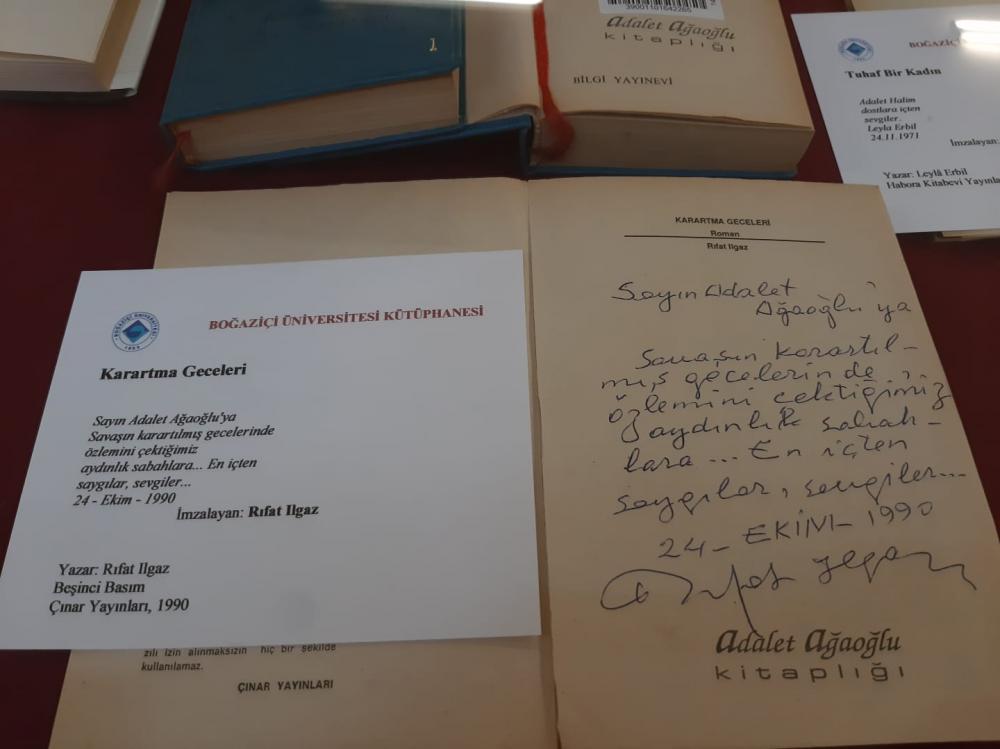 1
39001101642265
Adalet Ağaoğlu
kitaplığı
BİLGİ YAYINEVİ
BOĞAZİÇİ
Tuhaf Bir Kadın
Adalet Halim
dostlara içten
sevgiler.
Leyla Erbil
24.11.1971
İmzalayan:
Yazar: Leylâ Erbil
Habora Kitabevi Yayınla
KARARTMA GECELERİ
Roman
Rıfat Ilgaz
Sayın Adalet
Ağaoğlu'ya
Savaşın karartıl-
mış gecelerinde
özlemini çektiğimiz
aydınlık sabah-
lara... En içten
saygılar, sevgiler...
24 - EKİM - 1990
Rıfat Ilgaz
Adalet Ağaoğlu
kitaplığı
BOĞAZİÇİ ÜNİVERSİTESİ
1863
BOĞAZİÇİ ÜNİVERSİTESİ KÜTÜPHANESİ
Karartma Geceleri
Sayın Adalet Ağaoğlu'ya
Savaşın karartılmış gecelerinde
özlemini çektiğimiz
aydınlık sabahlara... En içten
saygılar, sevgiler...
24 - Ekim - 1990
İmzalayan: Rıfat Ilgaz
Yazar: Rıfat Ilgaz
Beşinci Basım
Çınar Yayınları, 1990
zılı izin alınmaksızın hiç bir şekilde
kullanılamaz.
ÇINAR YAYINLARI